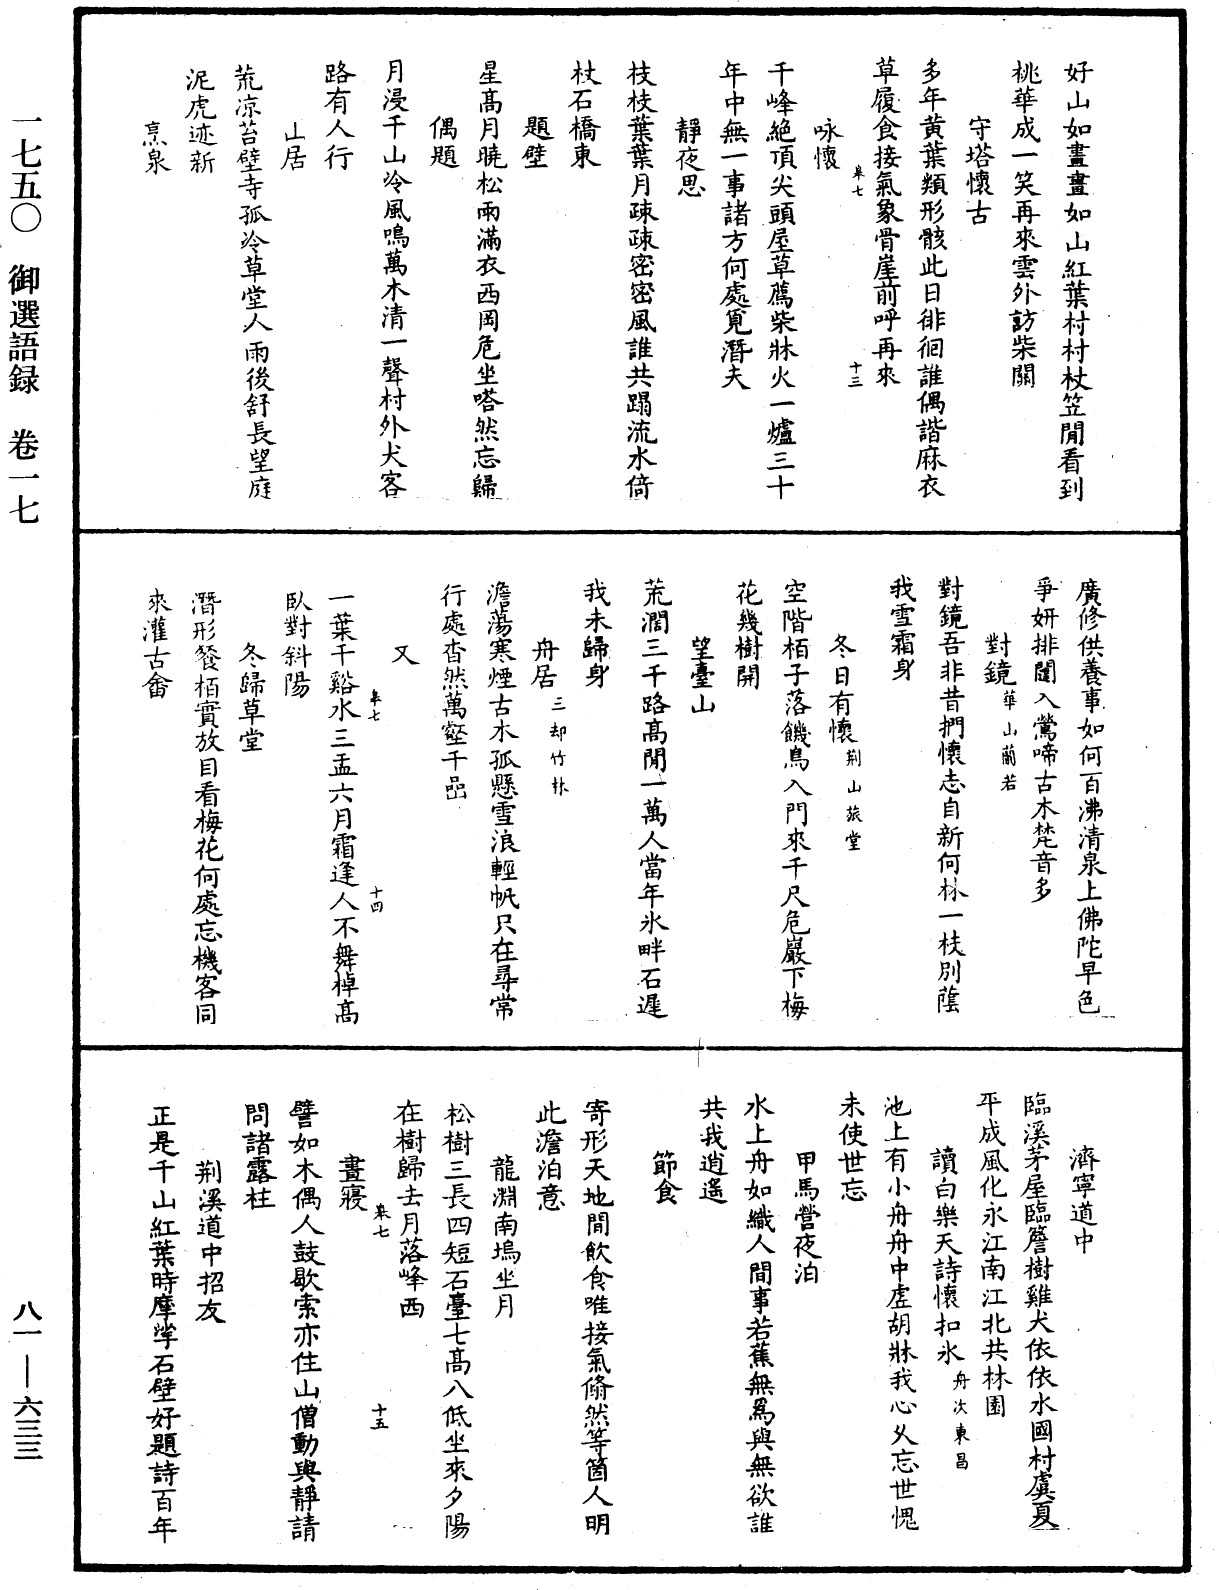 好山如畫畫如山紅葉村村杖笠閒看到
桃華成一笑再來雲外訪柴關
守塔懷古
多年黄葉類形骸此日徘徊誰偶諧麻衣
草履食接氣象骨崖前呼再來
𠔉七 十三
咏懷
千峰絶頂尖頭屋草薦柴牀火一爐三十
年中無一事諸方何處覓潛夫
靜夜思
枝枝葉葉月疎疎密密風誰共蹋流水倚
杖石橋東
題壁
星高月曉松雨滿衣西岡危坐嗒然忘歸
偶題
月浸千山冷風鳴萬木清一聲村外犬客
路有人行
山居
荒凉苔壁寺孤冷草堂人雨後舒長望庭
泥虎迹新
烹泉
廣修供養事如何百沸清泉上佛陀早色
爭妍排闥入鶯啼古木梵音多
對鏡 華山蘭若
對鏡吾非昔捫懷志自新何林一枝別蔭
我雪霜身
冬日有懷 荆山旅堂
空階栢子落饑鳥入門來千尺危巖下梅
花幾樹開
望臺山
荒濶三千路高閒一萬人當年氷畔石遲
我未歸身
舟居 三却竹林
澹蕩寒煙古木孤懸雪浪輕帆只在尋常
行處杳然萬壑千嵒
又
𠔉七 十四
一葉千谿水三盂六月霜逢人不舞棹高
臥對斜陽
冬歸草堂
潛形餐栢實放目看梅花何處忘機客同
來灌古畬
濟寧道中
臨溪茅屋臨簷樹雞犬依依水國村虞夏
平成風化永江南江北共林園
讀白樂天詩懷扣氷 舟次東昌
池上有小舟舟中虚胡牀我心久忘世愧
未使世忘
甲馬營夜泊
水上舟如織人間事若蕉無爲與無欲誰
共我逍遙
節食
寄形天地間飲食唯接氣翛然等箇人明
此澹泊意
龍淵南塢坐月
松樹三長四短石臺七高八低坐來夕陽
在樹歸去月落峰西
𠔉七 十五
晝寢
譬如木偶人鼓歇索亦住山僧動與靜請
問諸露柱
荆溪道中招友
正是千山紅葉時摩挲石壁好題詩百年
一七五〇 御選語録 卷一七
八一—六三三